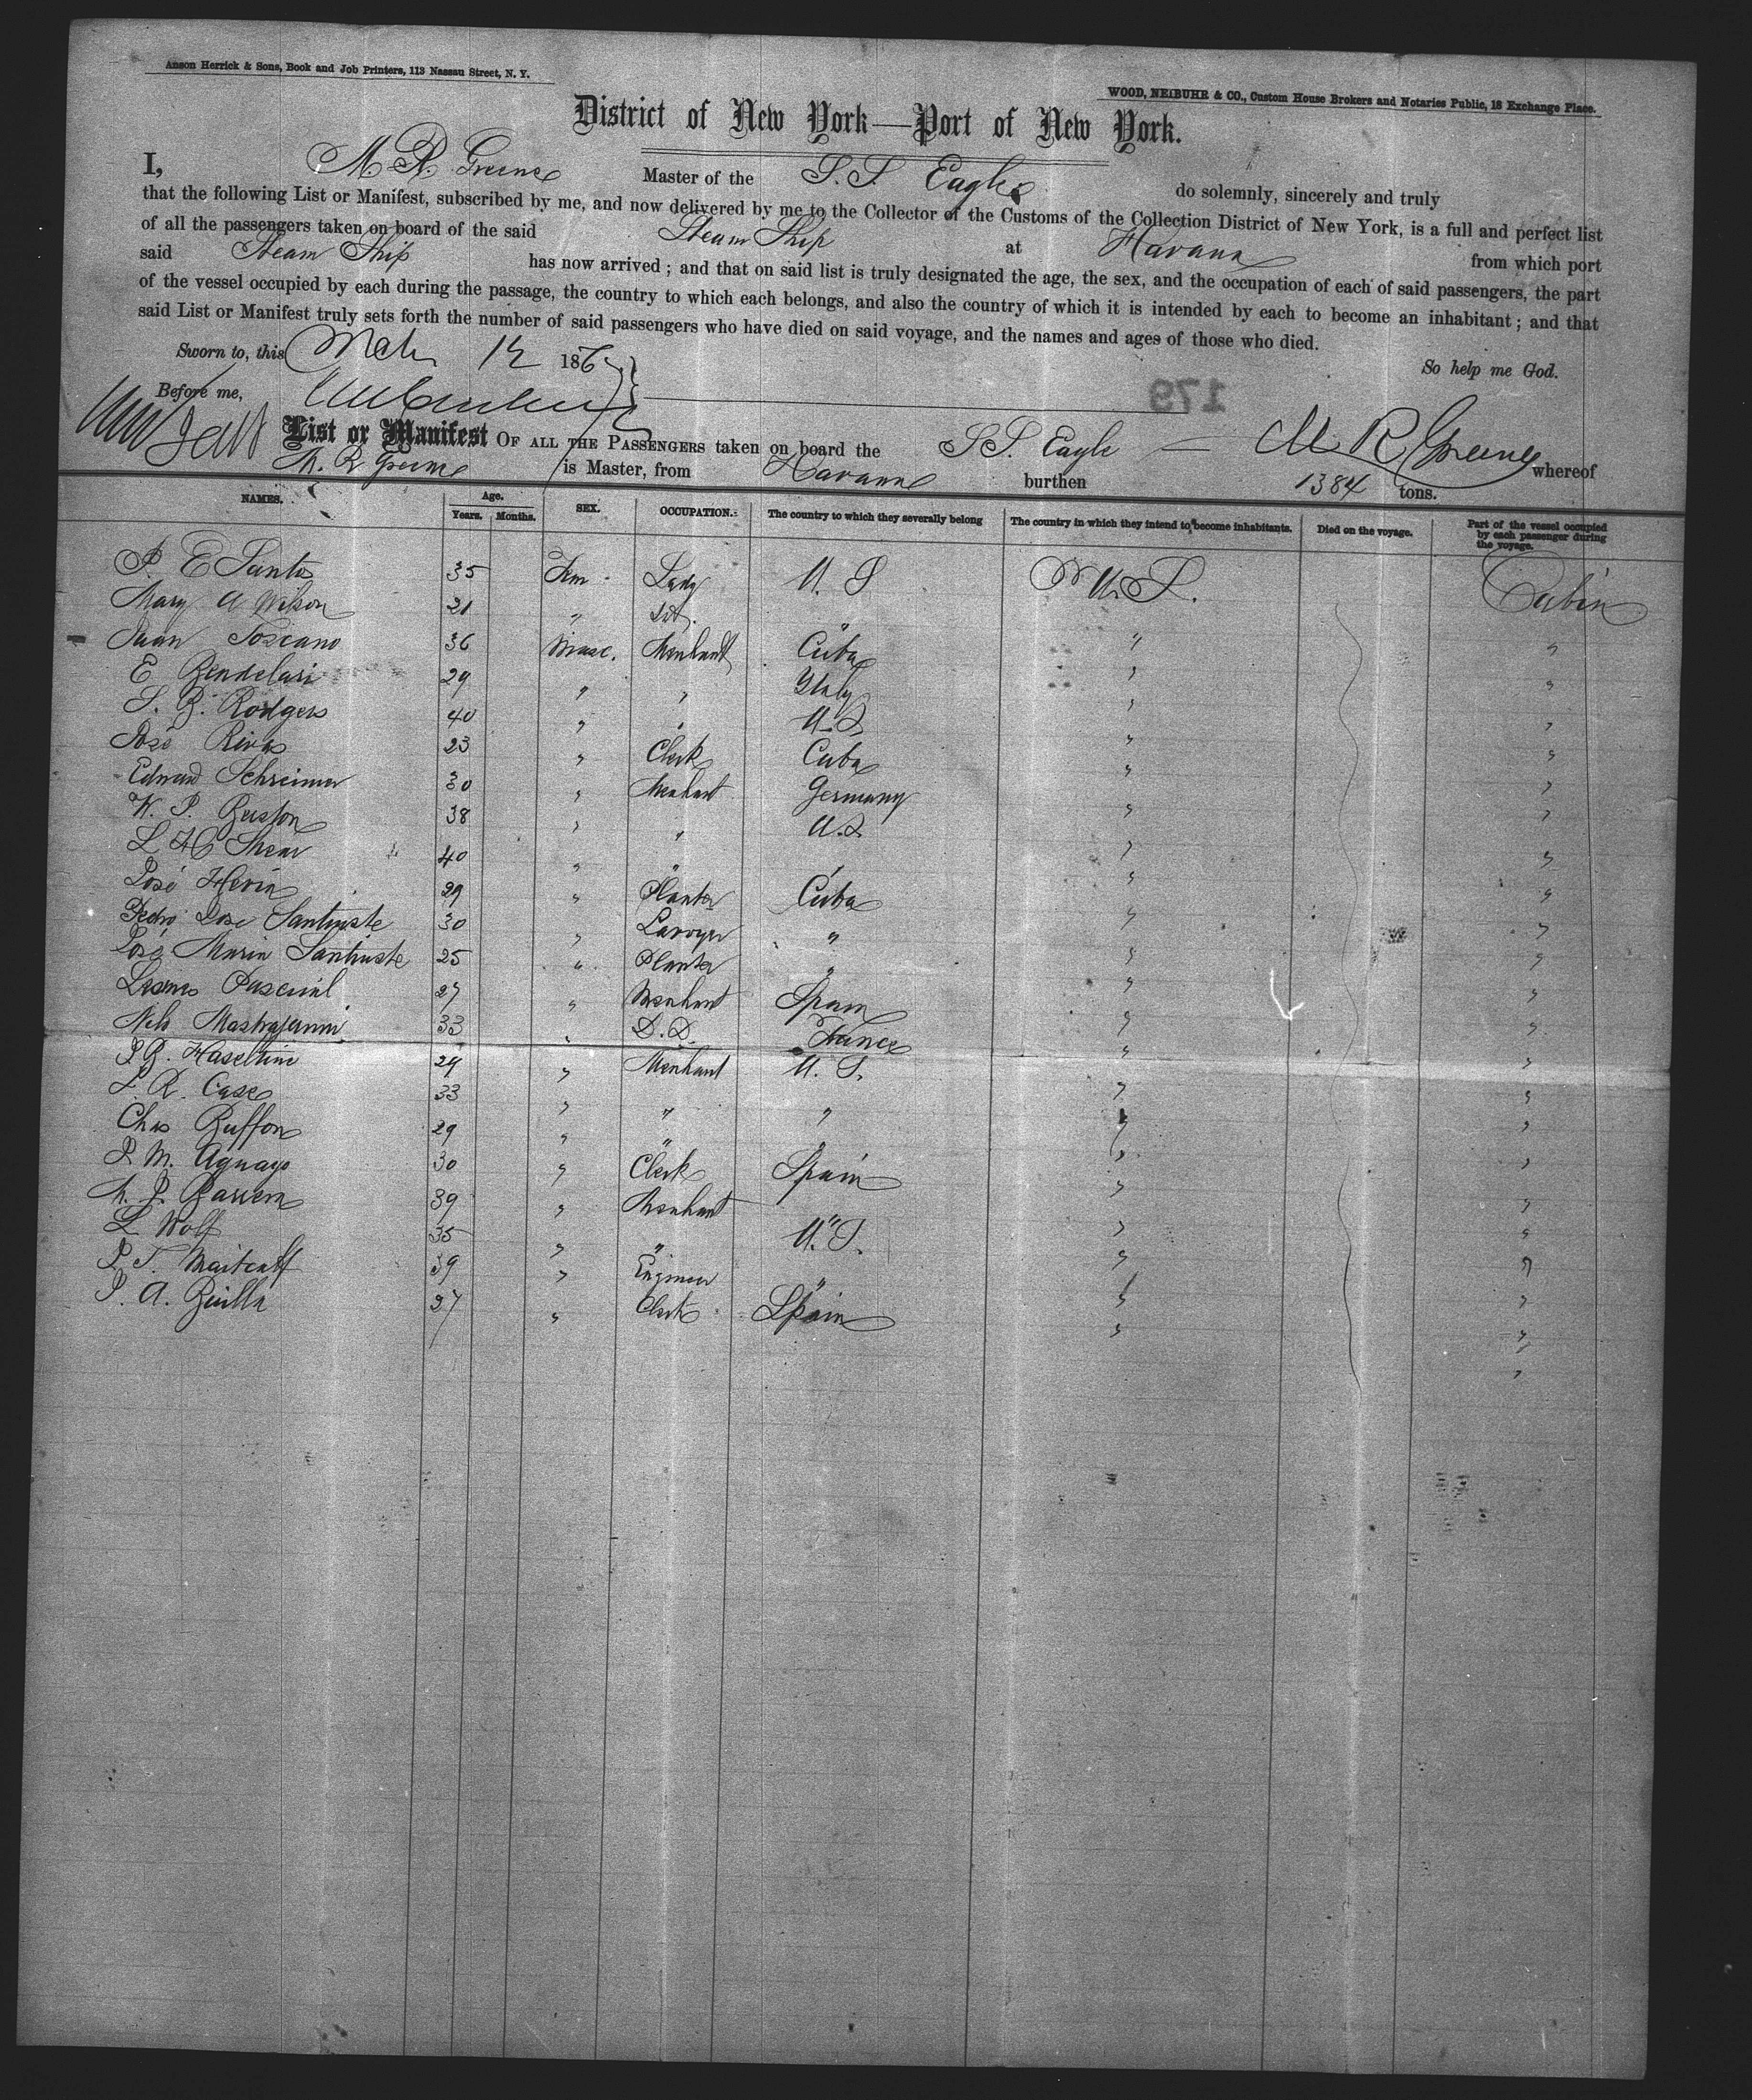 Anson Herrick & Sons, Book and Job Printers, 113 Nassau Street, N. Y.
WOOD, NEIBUHR & CO., Custom House Brokers and Notaries Public, 18 Exchange Place.
District of New York—Port of New York.
I, M. R. Greene Master of the S. S. Eagle do solemnly, sincerely and truly
that the following List or Manifest, subscribed by me, and now delivered by me to the Collector of the Customs of the Collection District of New York, is a full and perfect list
of all the passengers taken on board of the said Steam Ship at Havana from which port
said Steam Ship has now arrived; and that on said list is truly designated the age, the sex, and the occupation of each of said passengers, the part
of the vessel occupied by each during the passage, the country to which each belongs, and also the country of which it is intended by each to become an inhabitant; and that
said List or Manifest truly sets forth the number of said passengers who have died on said voyage, and the names and ages of those who died.
So help me God.
Sworn to, this Mch 12 186
179
Before me,
List or Manifest OF ALL THE PASSENGERS taken on board the S S. Eagle — M R Greene whereof
M. R Greene is Master, from Havana burthen 1384 tons.
NAMES. Age. Years. Months. SEX. OCCUPATION. The country to which they severally belong The country in which they intend to become inhabitants. Died on the voyage. Part of the vessel occupied by each passenger during the voyage.
P. E Santos 35 Fem. Lady U. S U. S. Cabin
Mary A Wilson 21 " " " "
Juan Toscano 36 Masc. Merchant Cuba " "
E Bendelari 29 " " Italy " "
S. B. Rodgers 40 " " U.S. " "
José Rivas 23 " Clerk Cuba " "
Edward Schreiner 30 " Merchant Germany " "
W. P. 38 " " U.S. " "
L H 40 " " " " "
José Hevia 29 " Planter Cuba " "
Pedro José Santiuste 30 " Lawyer " " "
José Maria Santiuste 25 " Planter " " "
Pascual 27 " Merchant Spain " "
33 " D. D. France " "
Haseltine 29 " Merchant U. S. " "
R. Case 33 " " " " "
Chas Buffon 29 " " " " "
M. Aguayo 30 " Clerk Spain " "
39 " Merchant " " "
L Wolf 35 " " U. S. " "
39 " Engineer " " "
A. 27 " Clerk Spain " "